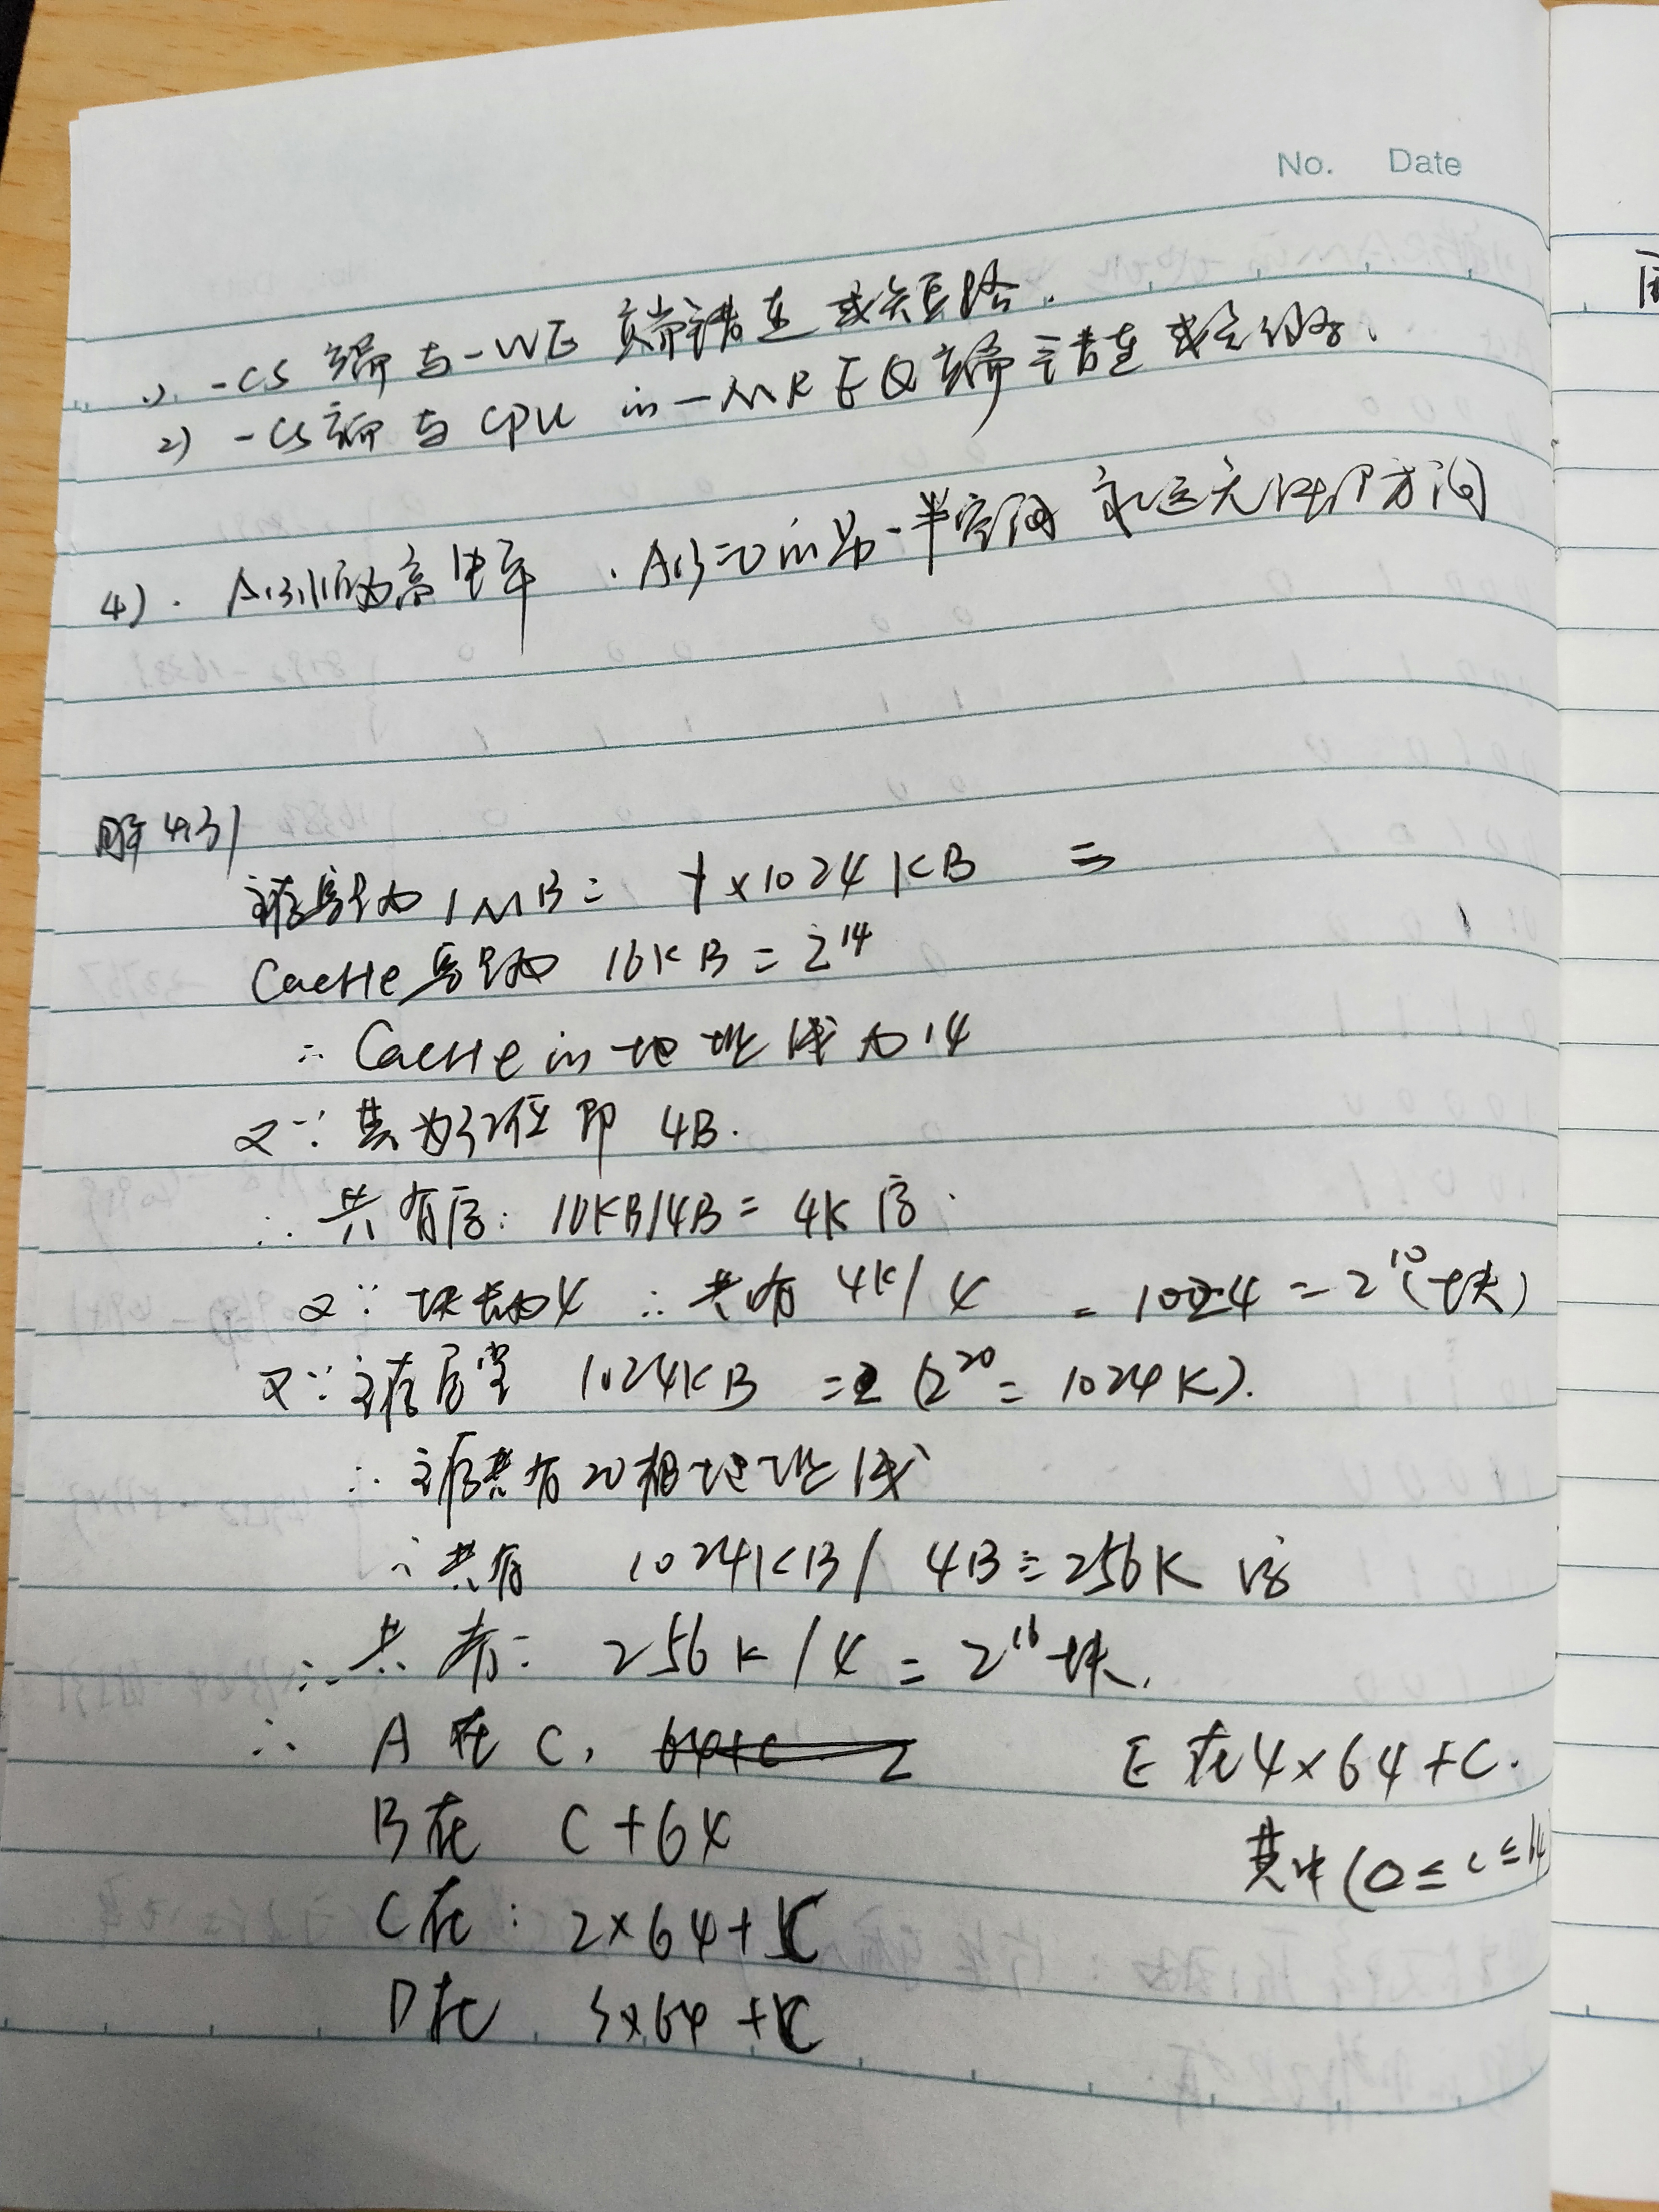 No. Date
1) -CS端与-WE端错连或短路.
2) -CS端与CPU的-MREQ端错连或短路.
4). A13 为高电平. A13=0的另一半空间永远无法访问
解 4.31
主存容量为 1MB = 1×1024KB =
CacHe容量为 16KB = 2^14
∴ CacHe的地址线为14
又∵ 其为32位 即 4B.
∴ 共有字: 16KB/4B = 4K字.
又∵ 块长为4 ∴ 共有 4K/4 = 1024 = 2^10(块)
又∵ 主存容量 1024KB = (2^20 = 1024K).
∴ 主存共有20根地址线
∴ 共有 1024KB / 4B = 256K 字
∴ 共有: 256K/4 = 2^16块.
∴ A在 C, E在4×64+C.
B在 C+64 其中(0≤c≤
C在: 2×64+C
D在 3×64+C